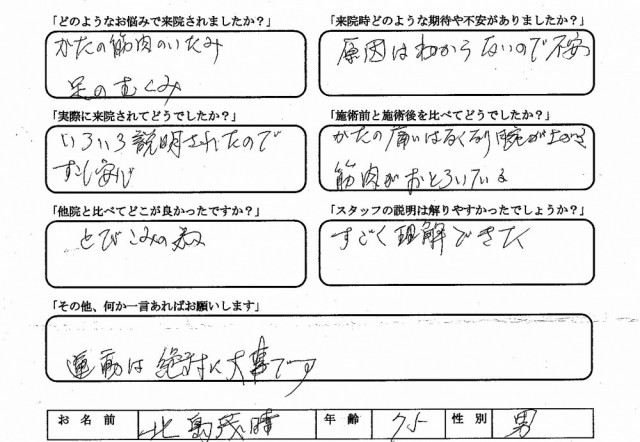 「どのようなお悩みで来院されましたか？」
かたの筋肉のいたみ
足のむくみ
「来院時どのような期待や不安がありましたか？」
原因はわからないので不安
「実際に来院されてどうでしたか？」
いろいろ説明されたので
すこし安心
「施術前と施術後を比べてどうでしたか？」
かたの痛いはなくなり腕が上がる
筋肉がおとろいている
「他院と比べてどこが良かったですか？」
とびこみの為
「スタッフの説明は解りやすかったでしょうか？」
すごく理解できた
「その他、何か一言あればお願いします」
運動は絶対に大事です
お名前 北島茂晴 年齢 75 性別 男